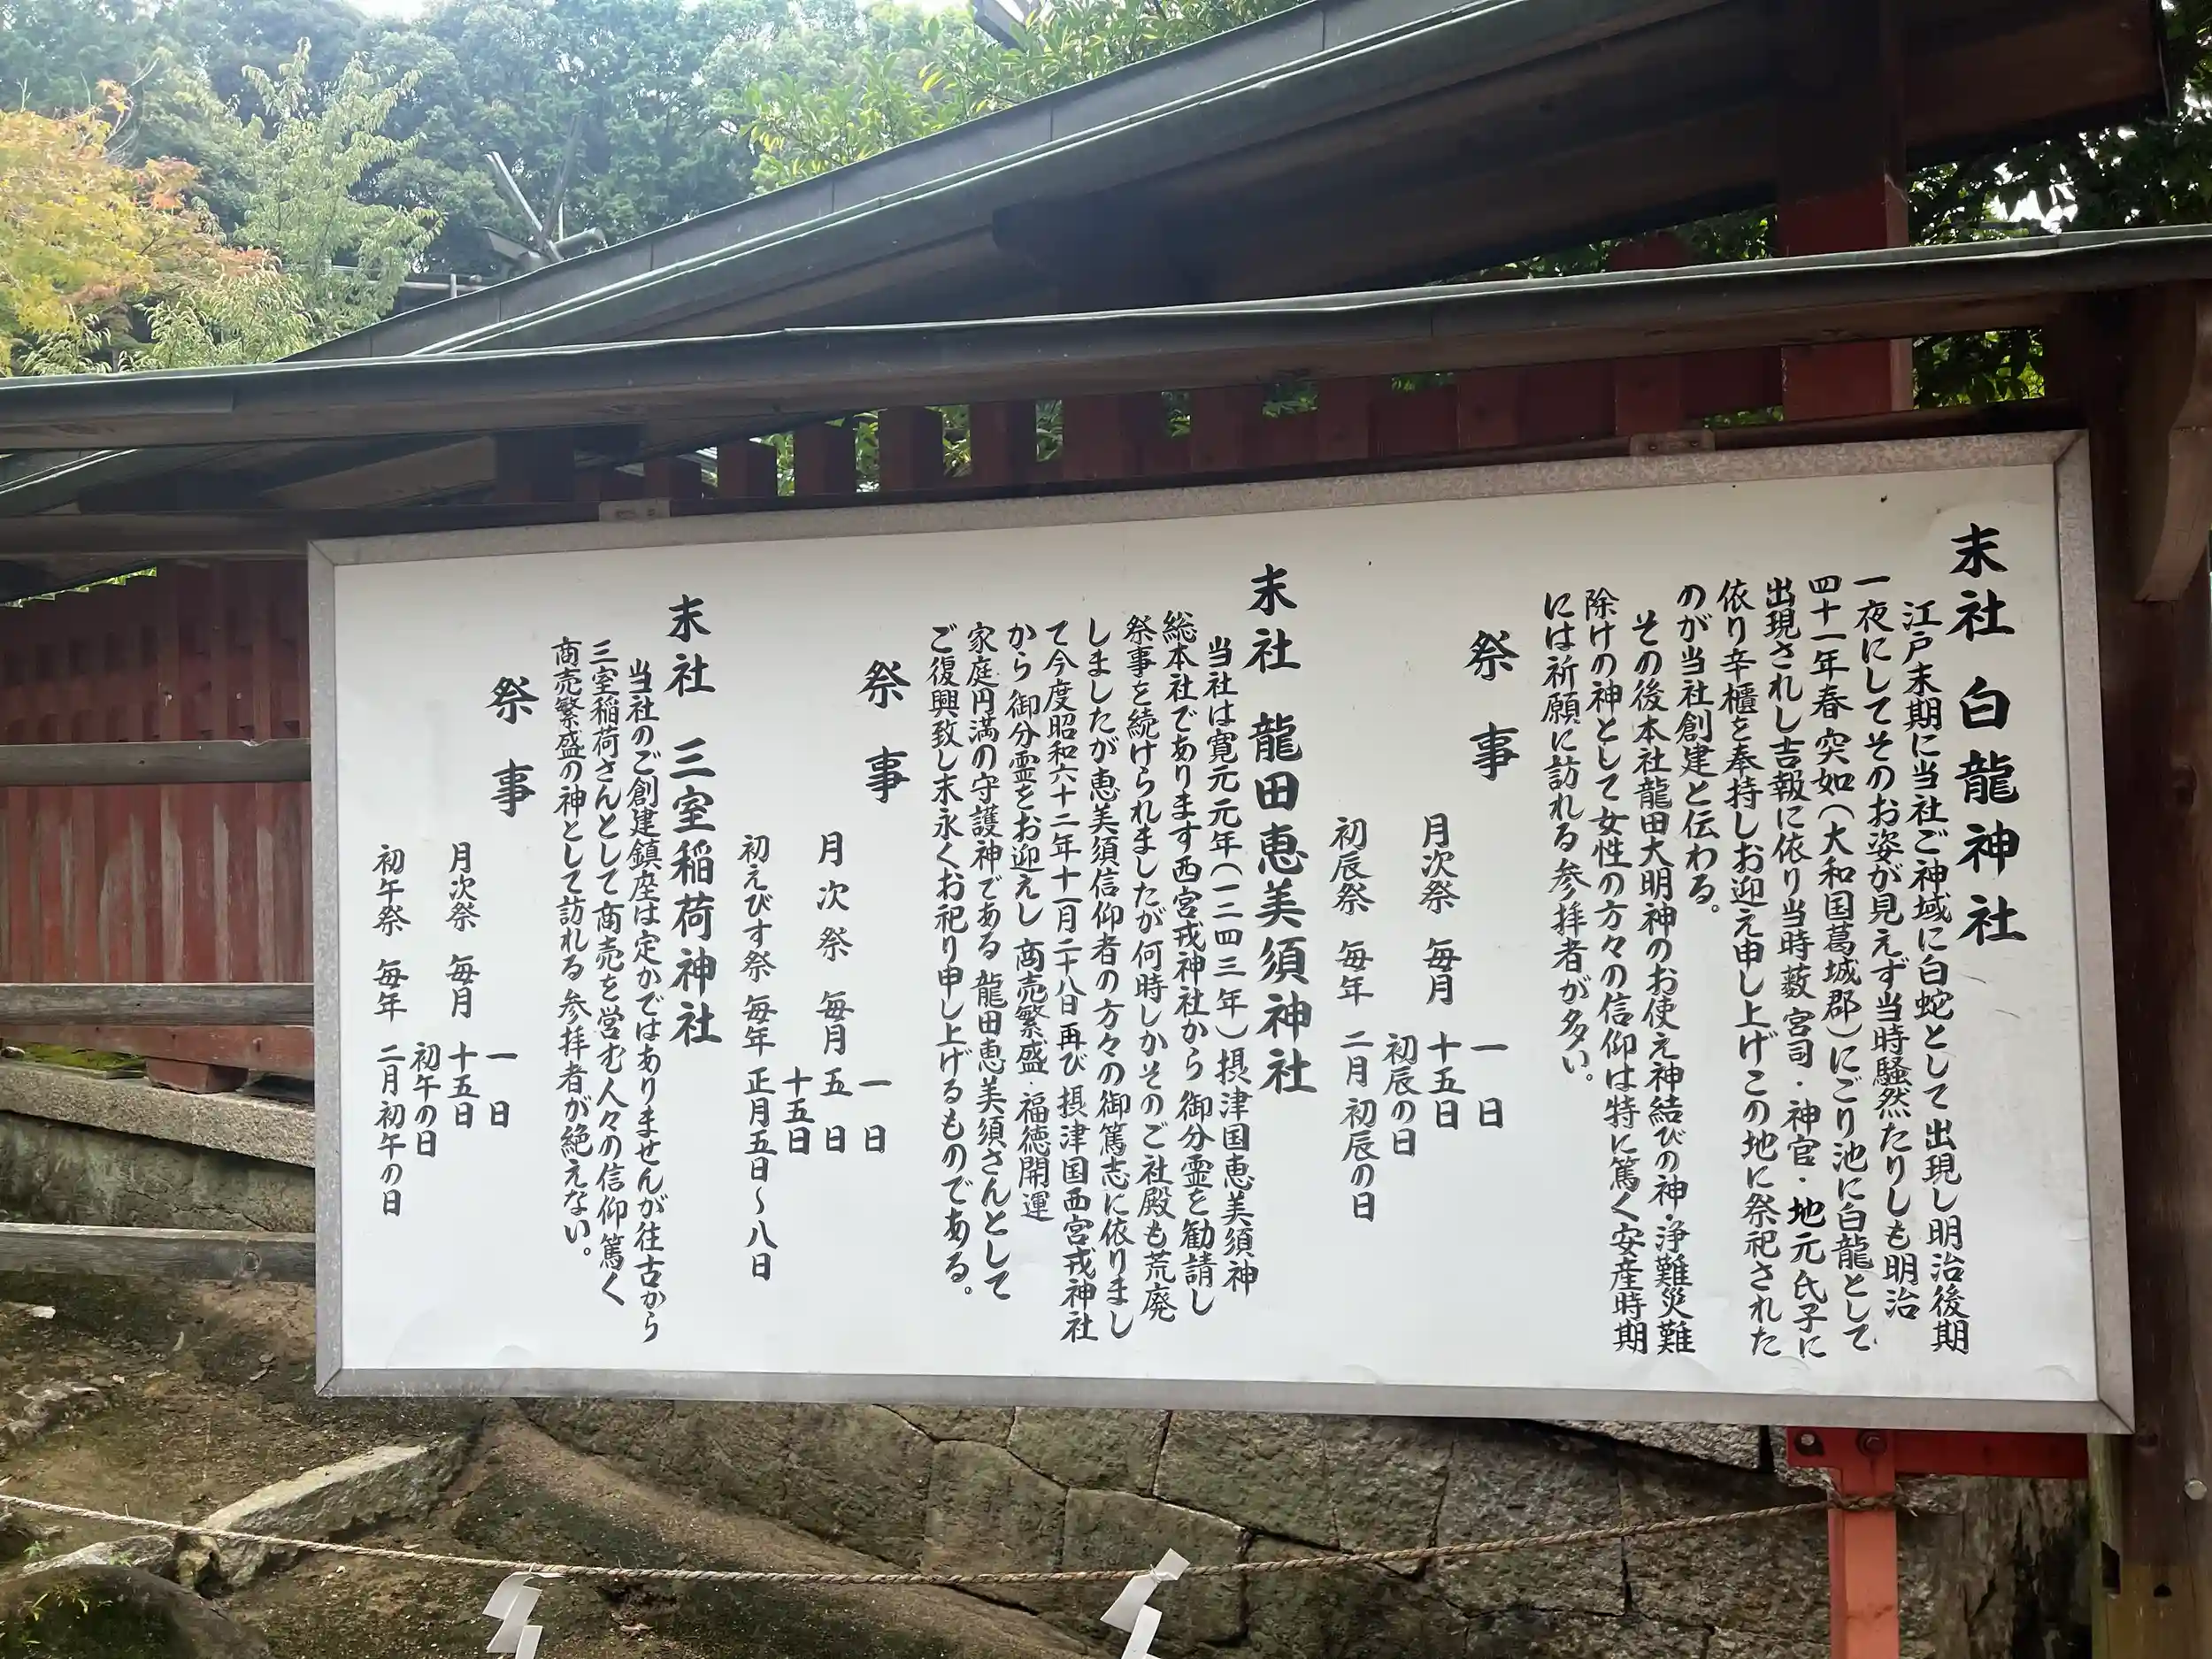 末社 白龍神社
江戸末期に当社ご神域に白蛇として出現し明治後期
一夜にしてそのお姿が見えず当時騒然たりしも明治
四十一年春突如(大和国葛城郡)にごり池に白龍として
出現されし吉報に依り当時藪宮司・神官・地元氏子に
依り辛櫃を奉持しお迎え申し上げこの地に祭祀された
のが当社創建と伝わる。
その後本社龍田大明神のお使え神結びの神・浄難災難
除けの神として女性の方々の信仰は特に篤く安産時期
には祈願に訪れる参拝者が多い。
祭事
一日
月次祭 毎月 十五日
初辰の日
初辰祭 毎年 二月初辰の日
末社 龍田恵美須神社
当社は寛元元年(一二四三年)摂津国恵美須神
総本社であります西宮戎神社から御分霊を勧請し
祭事を続けられましたが何時しかそのご社殿も荒廃
しましたが恵美須信仰者の方々の御篤志に依りまし
て今度昭和六十二年十一月二十八日再び摂津国西宮戎神社
から御分霊をお迎えし 商売繁盛・福徳開運
家庭円満の守護神である龍田恵美須さんとして
ご復興致し末永くお祀り申し上げるものである。
祭事
一日
月次祭 毎月 五日
十五日
初えびす祭 毎年 正月五日~八日
末社 三室稲荷神社
当社のご創建鎮座は定かではありませんが往古から
三室稲荷さんとして商売を営む人々の信仰篤く
商売繁盛の神として訪れる参拝者が絶えない。
祭事
一日
月次祭 毎月 十五日
初午の日
初午祭 毎年 二月初午の日